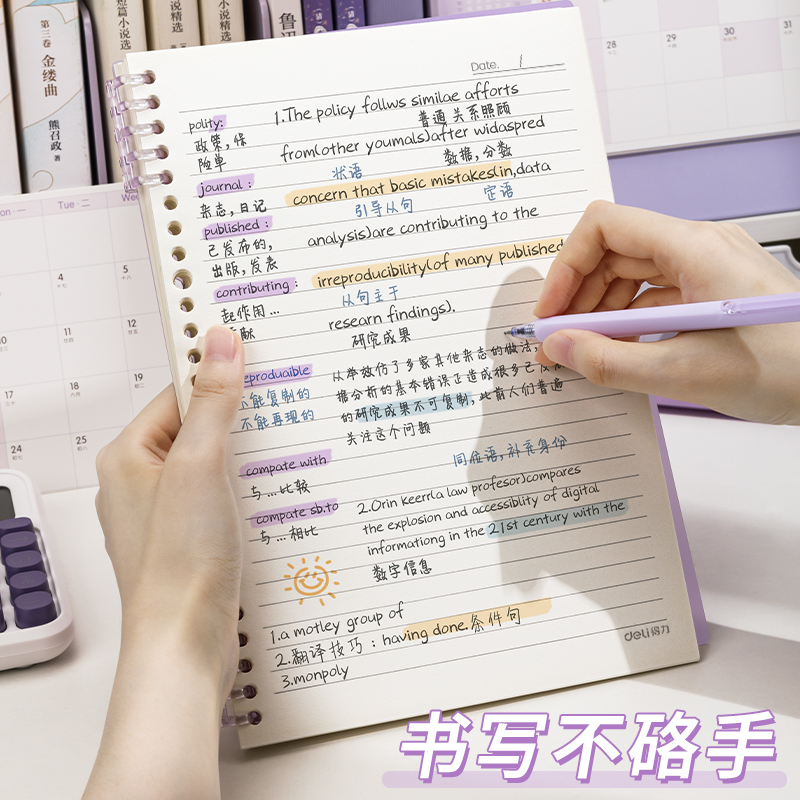 第三卷
金缕曲
熊召政 著
短篇小说选
小说精选
说精选
鲁迅
Date. /
Mon 一
Tue · 二
polity:
政策, 保
险单
1.The policy follws similae afforts
普通 关系照顾
from(other youmals)after widaspred
状语
数据, 分数
journal :
杂志, 日记
concern that basic mistakes(in,data
引导从句
定语
published :
已发布的,
出版, 发表
analysis)are contributing to the
contributing :
起作用...
irreproducibility(of many published
从句主于
researn findings).
研究成果
eproduaible
能复制的
不能再现的
从举效仿了多家其他杂志的做法,
据分析的基本错误正造成很多已发
的研究成果不可复制, 此前人们普遍
关注这个问题
同位语, 补充身份
compate with
与...比较
compate sb.to
与...相比
2.Orin keerr(a law profesor)compares
the explosion and accessiblity of digital
informationg in the 21st century with the
数字信息
1.a motley group of
2.翻译技巧 : having done.条件句
3.monpoly
deli得力
28
29
30
31
4
5
11
12
17
18
19
24
25
书写不硌手